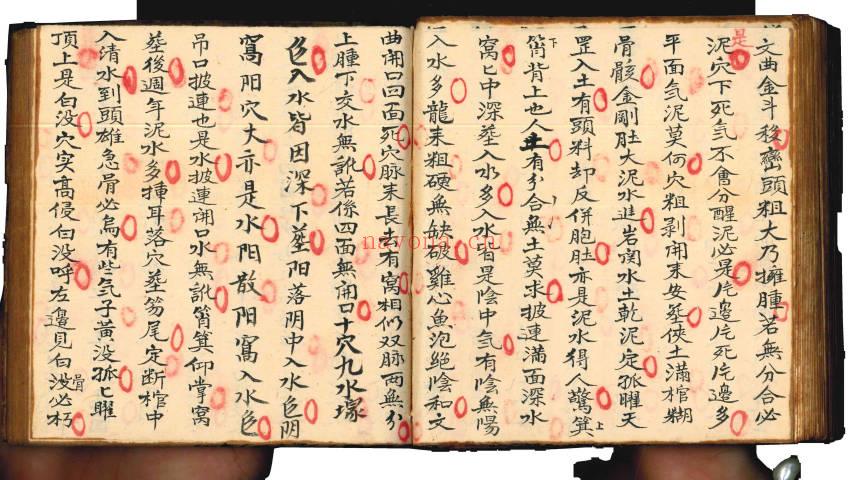 文曲金斗移巒頭粗大乃擁腫若無分合必
是泥穴下死気不會分醒泥必是片邊片死片邊多
平面気泥莫何穴粗剥開来安塟俠土滿棺糊
骨骸金剛肚大泥水進岩南水土乾泥定孤曜天
罡入土有頭料却反併胞肚亦是泥水得人驚箕上
下筲背上也人有分合無土莫求披連滿面深水
窩匕中深塟入水多入水者是陰中気有陰無陽
入水多龍来粗硬無缺破雞心魚泡絶陰和文
曲開口四面死穴脉来長去有窩相似双脉両無分
上腫下交水無訛若係四面無開口十穴九水塚
色入水皆因深下塟阳落阴中入水色阴
窩阳穴大亦是水阳散阳窩入水色
吊口披連也是水披連開口水無訛筲箕仰掌窩
塟後週年泥水多挿耳落穴塟笏尾定断棺中
入清水到頭雄急骨必烏有些気子黄没孤匕曜
頂上是白没穴突高侵白没呼左邊見白没必朽
骨
navona.cn